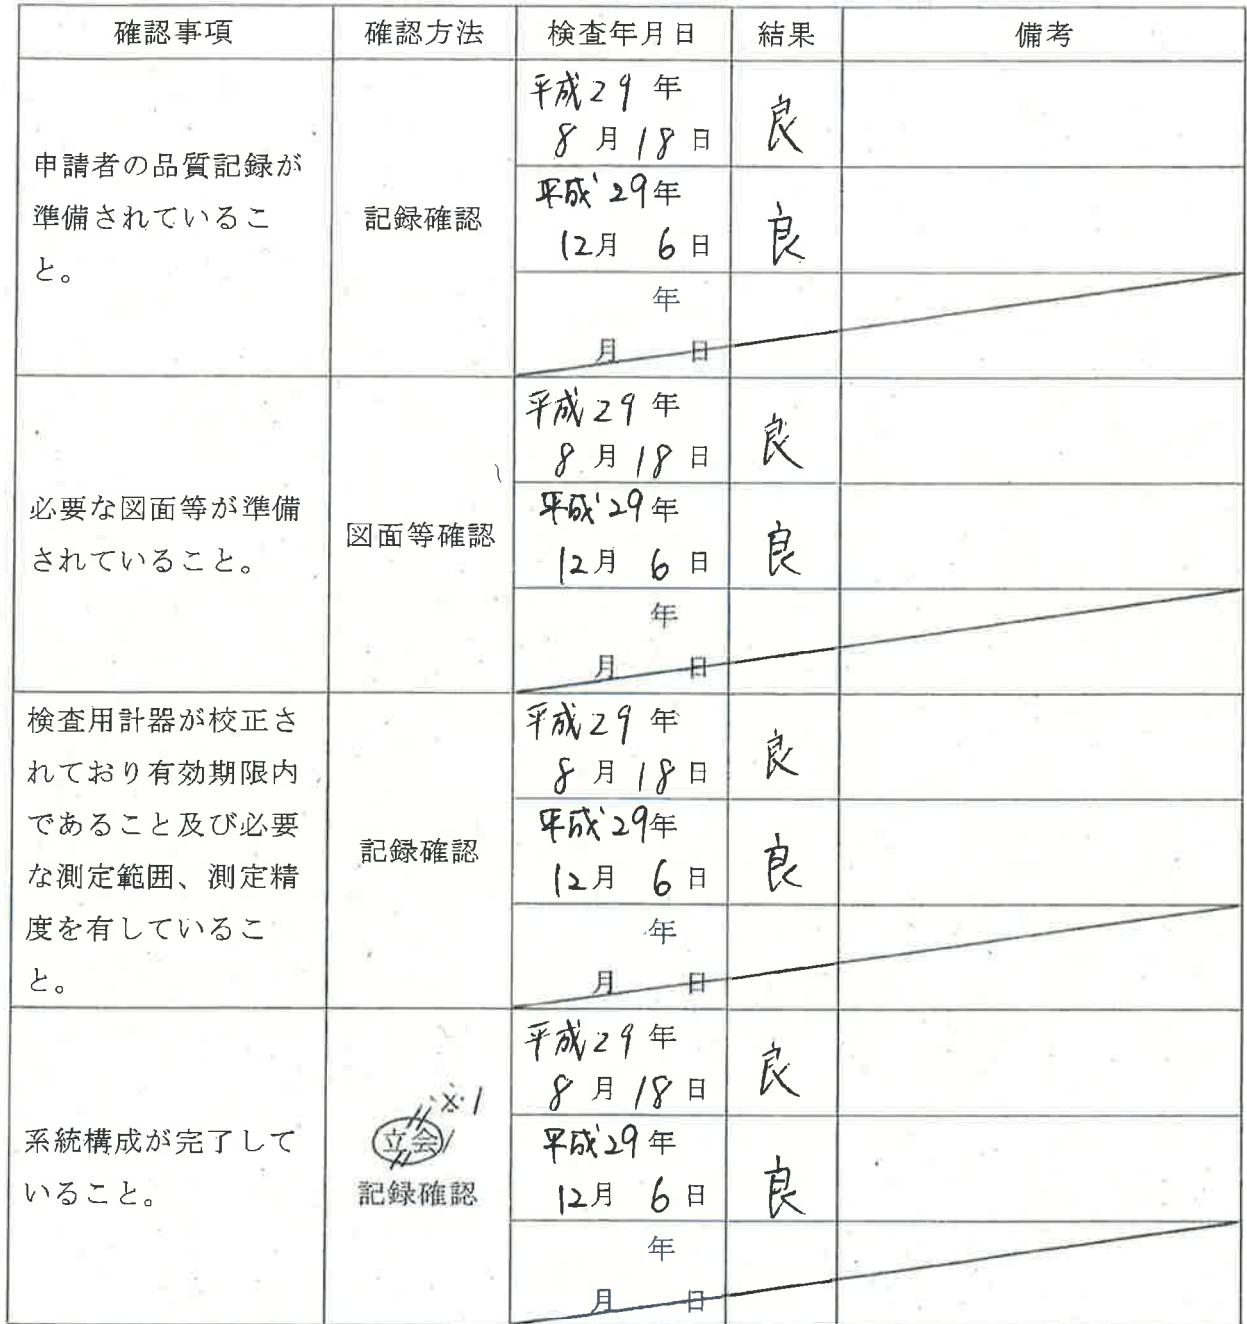 確認事項 確認方法 検査年月日 結果 備考
平成29年
8月18日 良
申請者の品質記録が
準備されているこ
と。
記録確認
平成29年
12月 6日 良
年
月 日
平成29年
8月18日 良
必要な図面等が準備
されていること。
図面等確認
平成29年
12月 6日 良
年
月 日
検査用計器が校正さ
れており有効期限内
であること及び必要
な測定範囲、測定精
度を有しているこ
と。
記録確認
平成29年
8月18日 良
平成29年
12月 6日 良
年
月 日
系統構成が完了して
いること。
※1
立会
記録確認
平成29年
8月18日 良
平成29年
12月 6日 良
年
月 日